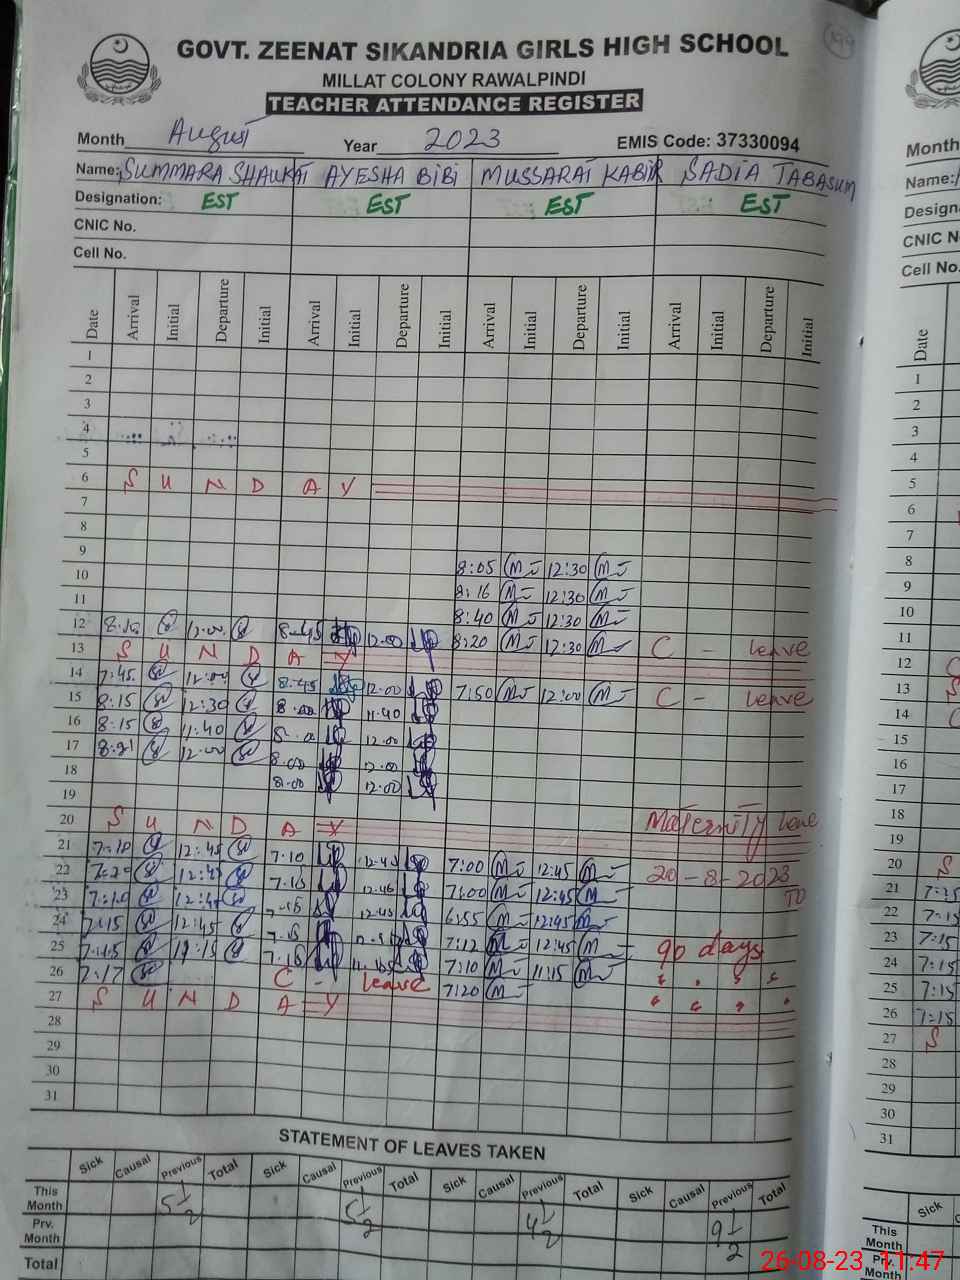 199
GOVT. ZEENAT SIKANDRIA GIRLS HIGH SCHOOL
MILLAT COLONY RAWALPINDI
TEACHER ATTENDANCE REGISTER
Month August Year 2023 EMIS Code: 37330094
Name: SUMMARA SHAUKAT AYESHA BIBI MUSSARAT KABIR SADIA TABASUM
Designation: EST EST EST EST
CNIC No.
Cell No.
Date Arrival Initial Departure Initial Arrival Initial Departure Initial Arrival Initial Departure Initial Arrival Initial Departure Initial
1
2
3
4
5
6 S U N D A Y
7
8
9
10 8:05 12:30
11 8:16 12:30
8:40 12:30
12 8:10 12:00 8:45 12:00 8:20 12:30 C - leave
13 S U N D A Y
14 7:45 12:00 8:45 12:00 7:50 12:00 C - leave
15 8:15 12:30 8:00 11:40
16 8:15 11:40 12:00
17 8:21 12:00 8:00 12:00
18 8:00 12:00
19
20 S U N D A Y Maternity leave
21 7:10 12:45 7:10 12:45 7:00 12:45 20-8-2023
22 12:45 7:15 12:45 7:00 12:45 TO
23 7:15 12:45 6:55 12:45
24 7:15 12:45 7:15 7:12 12:45 90 days
25 7:15 11:15 7:15 7:10 11:15
26 7:17 C - leave 7:20
27 S U N D A Y
28
29
30
31
STATEMENT OF LEAVES TAKEN
Sick Causal Previous Total Sick Causal Previous Total Sick Causal Previous Total Sick Causal Previous Total
This Month
Prv. Month
Total
Month
Name:
Design
CNIC N
Cell No.
Date
1
2
3
4
5
6
7
8
9
10
11
12
13 S
14
15
16
17
18
19
20 S
21
22
23 7:15
24 7:15
25 7:15
26 7:15
27 S
28
29
30
31
Sick
This Month
Prv. Month
26-08-23, 11:47